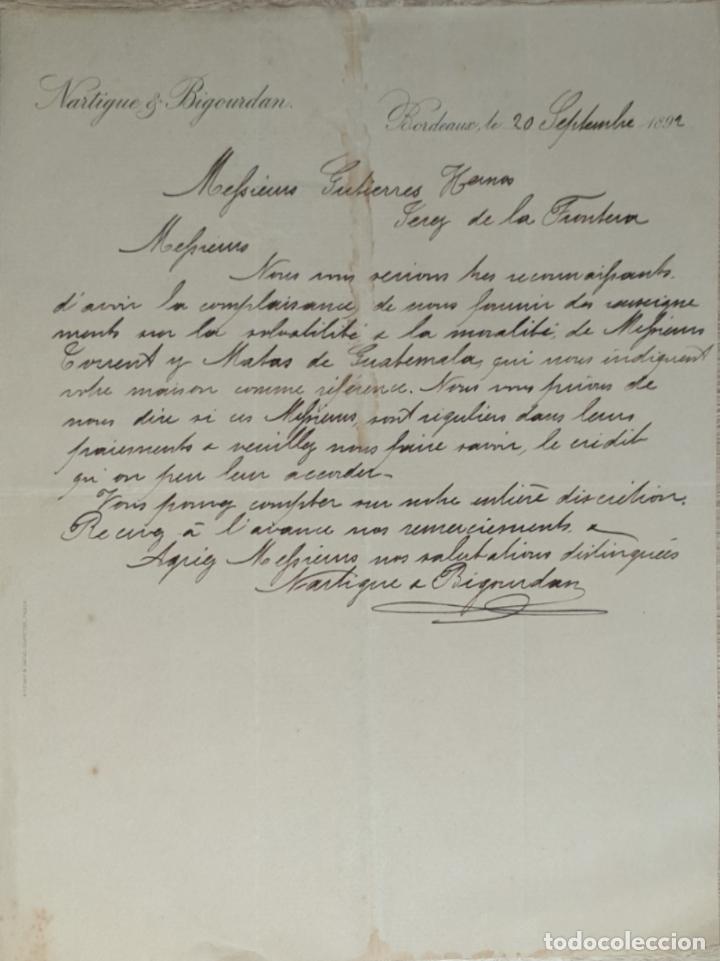 Nartigue & Bigourdan.
Bordeaux, le 20 Septembre 1892
Messieurs Gutierres Hernos
Serez de la Frontera
Messieurs
Nous vous serions très reconnaissants
d'avoir la complaisance, de nous fournir des renseigne
ments sur la solvabilité & la moralité, de Messieurs
Torrent y Matas de Guatemala, qui nous indiquent
votre maison comme référence. Nous vous prions de
nous dire si ces Messieurs, sont réguliers dans leurs
paiements & veuillez nous faire savoir, le crédit
qu'on peu leur accorder.
Vous pouvez compter sur notre entière discrétion.
Recevez à l'avance nos remerciements &
Agréez Messieurs nos salutations distinguées
Nartigue & Bigourdan
todocoleccion